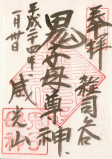 奉拝
雑司ヶ谷
鬼子母尊神
平成二十四年
一月廿日
威光山